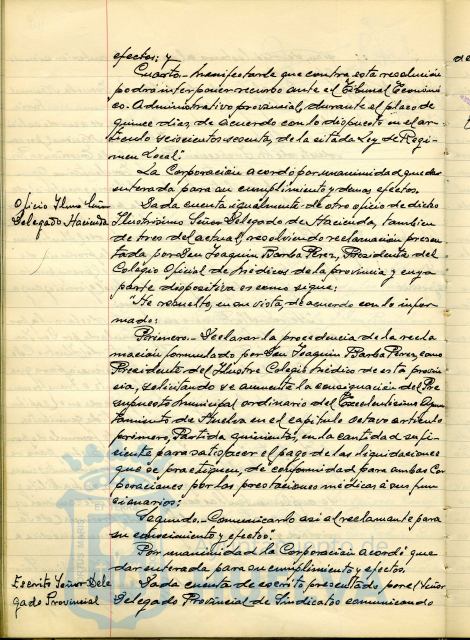 efectos: y
Cuarto.- Manifestarle que contra esta resolución
podrá interponer recurso ante el Tribunal Económi-
co-Administrativo provincial, durante el plazo de
quince dias, de acuerdo con lo dispuesto en el ar-
tículo seiscientos sesenta, de la citada Ley de Régi-
men Local."
La Corporación acordó por unanimidad quedar
enterada para su cumplimiento y demas efectos.
Oficio Iltmo Señor
Delegado Hacienda
Dada cuenta igualmente de otro oficio de dicho
Ilustrísimo Señor Delegado de Hacienda, tambien
de tres del actual, resolviendo reclamación presen-
tada por Don Joaquin Barba Pérez, Presidente del
Colegio Oficial de Médicos de la provincia y cuya
parte dispositiva es como sigue:
"He resuelto, en su vista, de acuerdo con lo infor-
mado:
Primero.- Declarar la procedencia de la recla
mación formulada por Don Joaquin Barba Pérez, como
Presidente del Ilustre Colegio Médico de esta provin
cia, solicitando se aumente la consignación del Pre
supuesto Municipal ordinario del Excelentísimo Ayun
tamiento de Huelva en el capítulo octavo artículo
primero, Partida quinientas, en la cantidad sufi-
ciente para satisfacer el pago de las liquidaciones
que se practiquen, de conformidad para ambas Cor
poraciones por las prestaciones médicas á sus fun
cionarios;
Segundo.- Comunicarlo asi al reclamante para
su conocimiento y efectos".
Por unanimidad la Corporación acordó que
dar enterada para su cumplimiento y efectos.
Escrito Señor Dele
gado Provincial
Dada cuenta de escrito presentado por el Señor
Delegado Provincial de Sindicatos comunicando